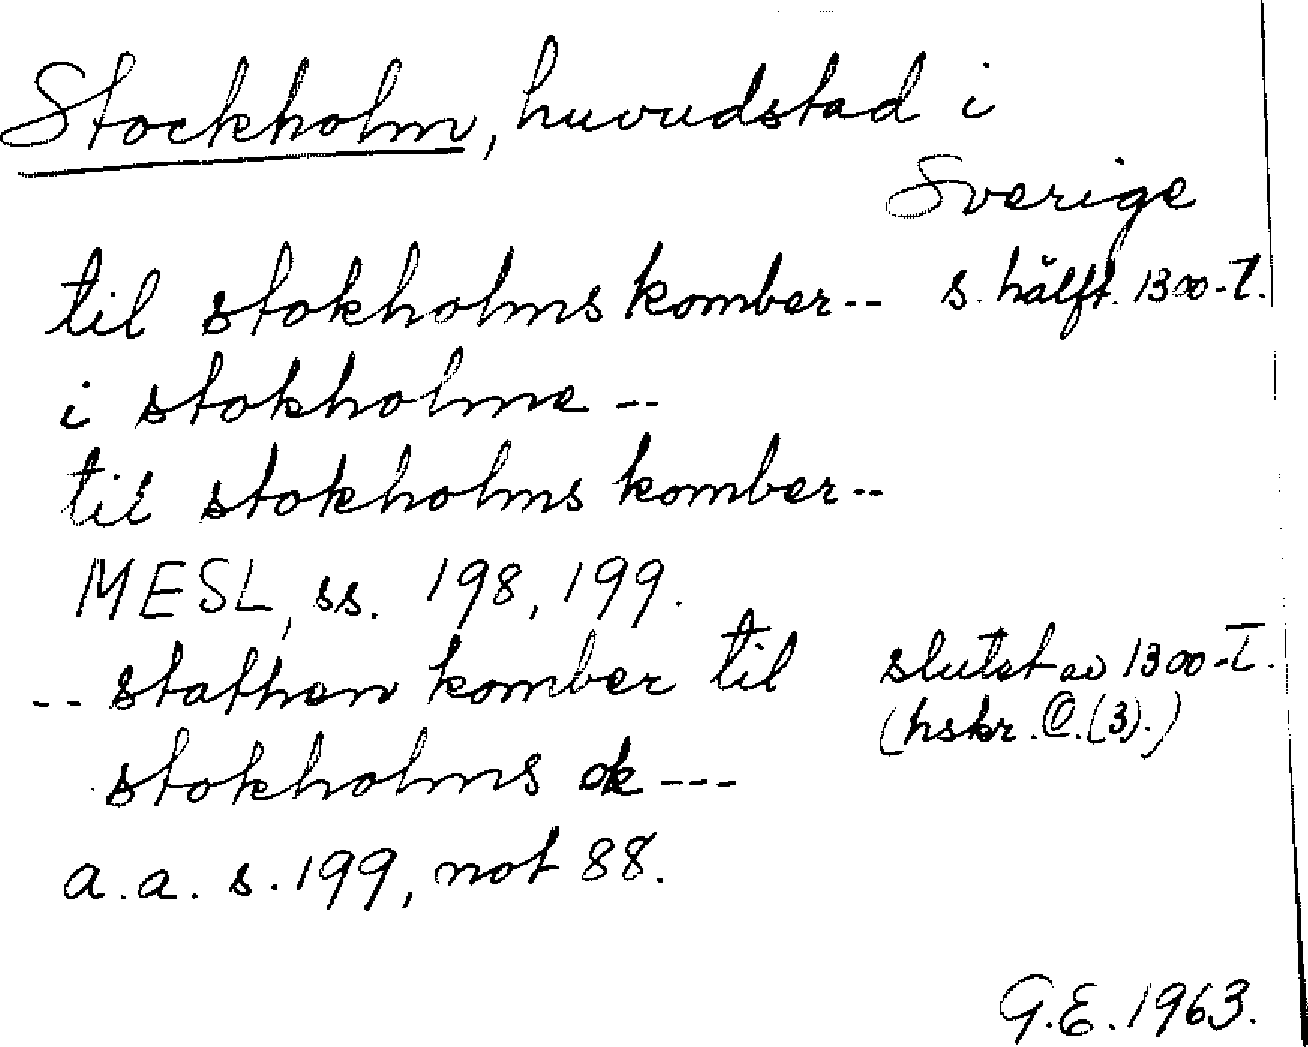 Stockholm, huvudstad i
Sverige
til stokholms komber-- s. hälft. 1300-t.
i stokholme --
til stokholms komber--
MESL, ss. 198, 199.
-- stathen komber til slutet av 1300-t.
(hskr. C.(3).)
stokholms ok ---
a.a. s. 199, not 88.
G.E. 1963.